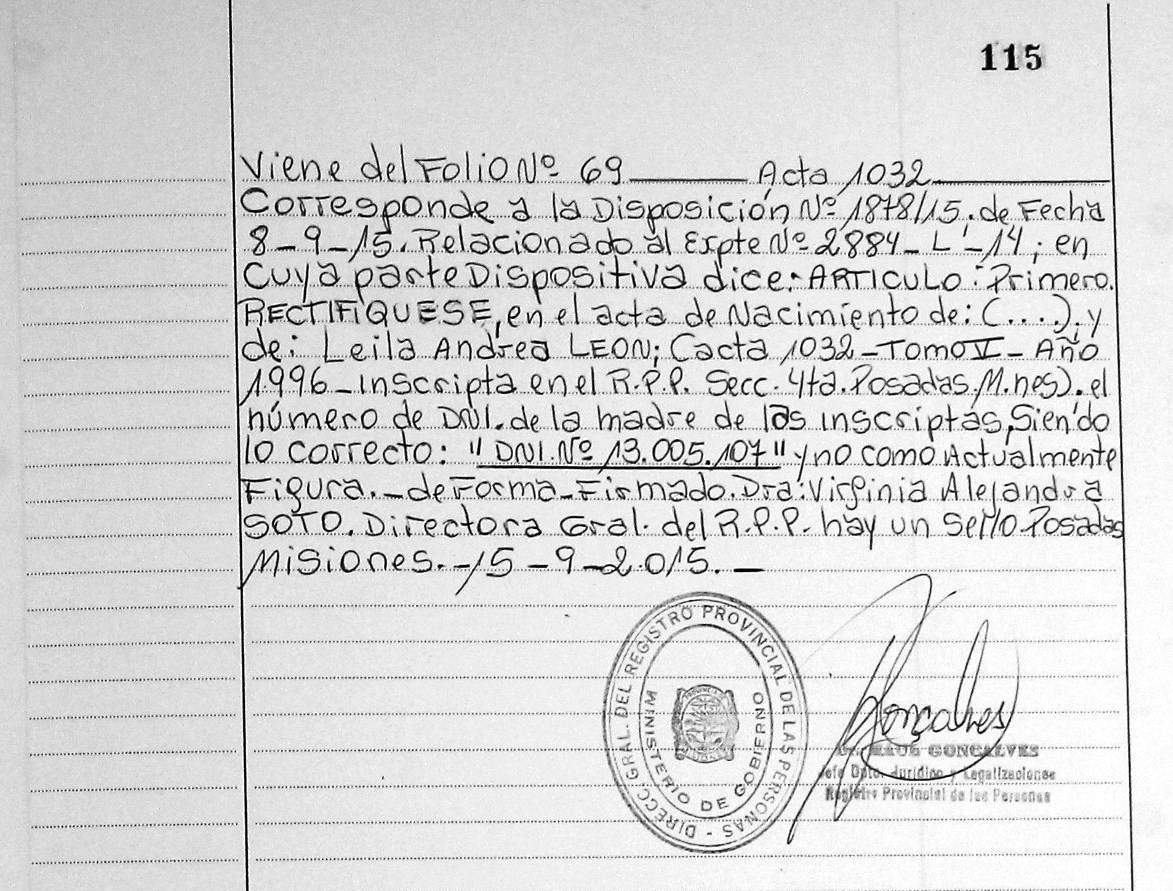 115
Viene del Folio Nº 69 Acta 1032
Corresponde a la Disposición Nº 1878/15. de Fecha
8-9-15. Relacionado al Expte Nº 2884-L'-14; en
Cuya parte Dispositiva dice: ARTICULO: Primero.
RECTIFIQUESE, en el acta de Nacimiento de: (....), y
de: Leila Andrea LEON; (acta 1032-Tomo V- Año
1996-Inscripta en el R.P.P. Secc. 4ta. Posadas. M.nes). el
número de DNI. de la madre de las inscriptas, Siendo
lo correcto: "DNI. Nº 13.005.107" y no como Actualmente
Figura.-de Forma-Firmado. Dra: Virginia Alejandra
SOTO. Directora Gral. del R.P.P. hay un Sello Posadas
Misiones.-15-9-2015.-
DIRECC. GRAL. DEL REGISTRO PROVINCIAL DE LAS PERSONAS -
MINISTERIO DE GOBIERNO
Goncalves
GONCALVES
Jefe Dpto. Jurídico y Legalizaciones
Registro Provincial de las Personas